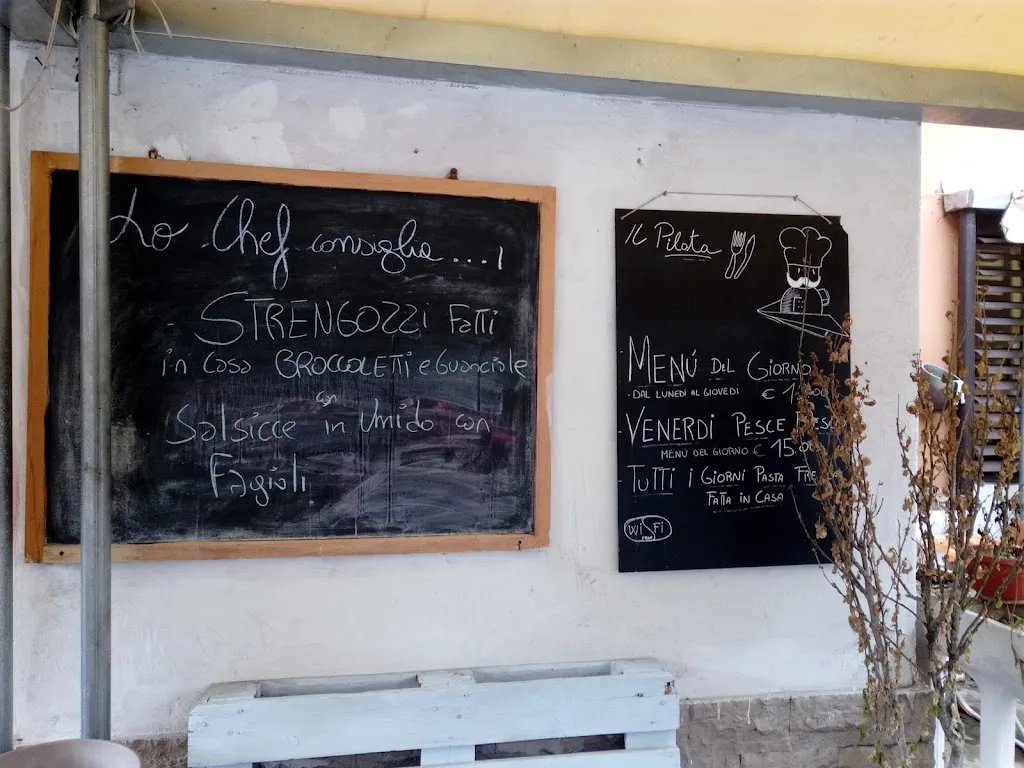 Lo Chef consiglia....!
- STRENGOZZi Fatti
in Casa BROCCOLETTi e Guanciale
Salsicce in Umido con
Fagioli
IL Pilata
MENÚ DEL GIORNO
DAL LUNEDì AL GIOVEDì €
VENERDì PESCE
MENÚ DEL GIORNO € 15.00
TUTTI i GIORNI PASTA
FATTA IN CASA
Wi Fi
FREE